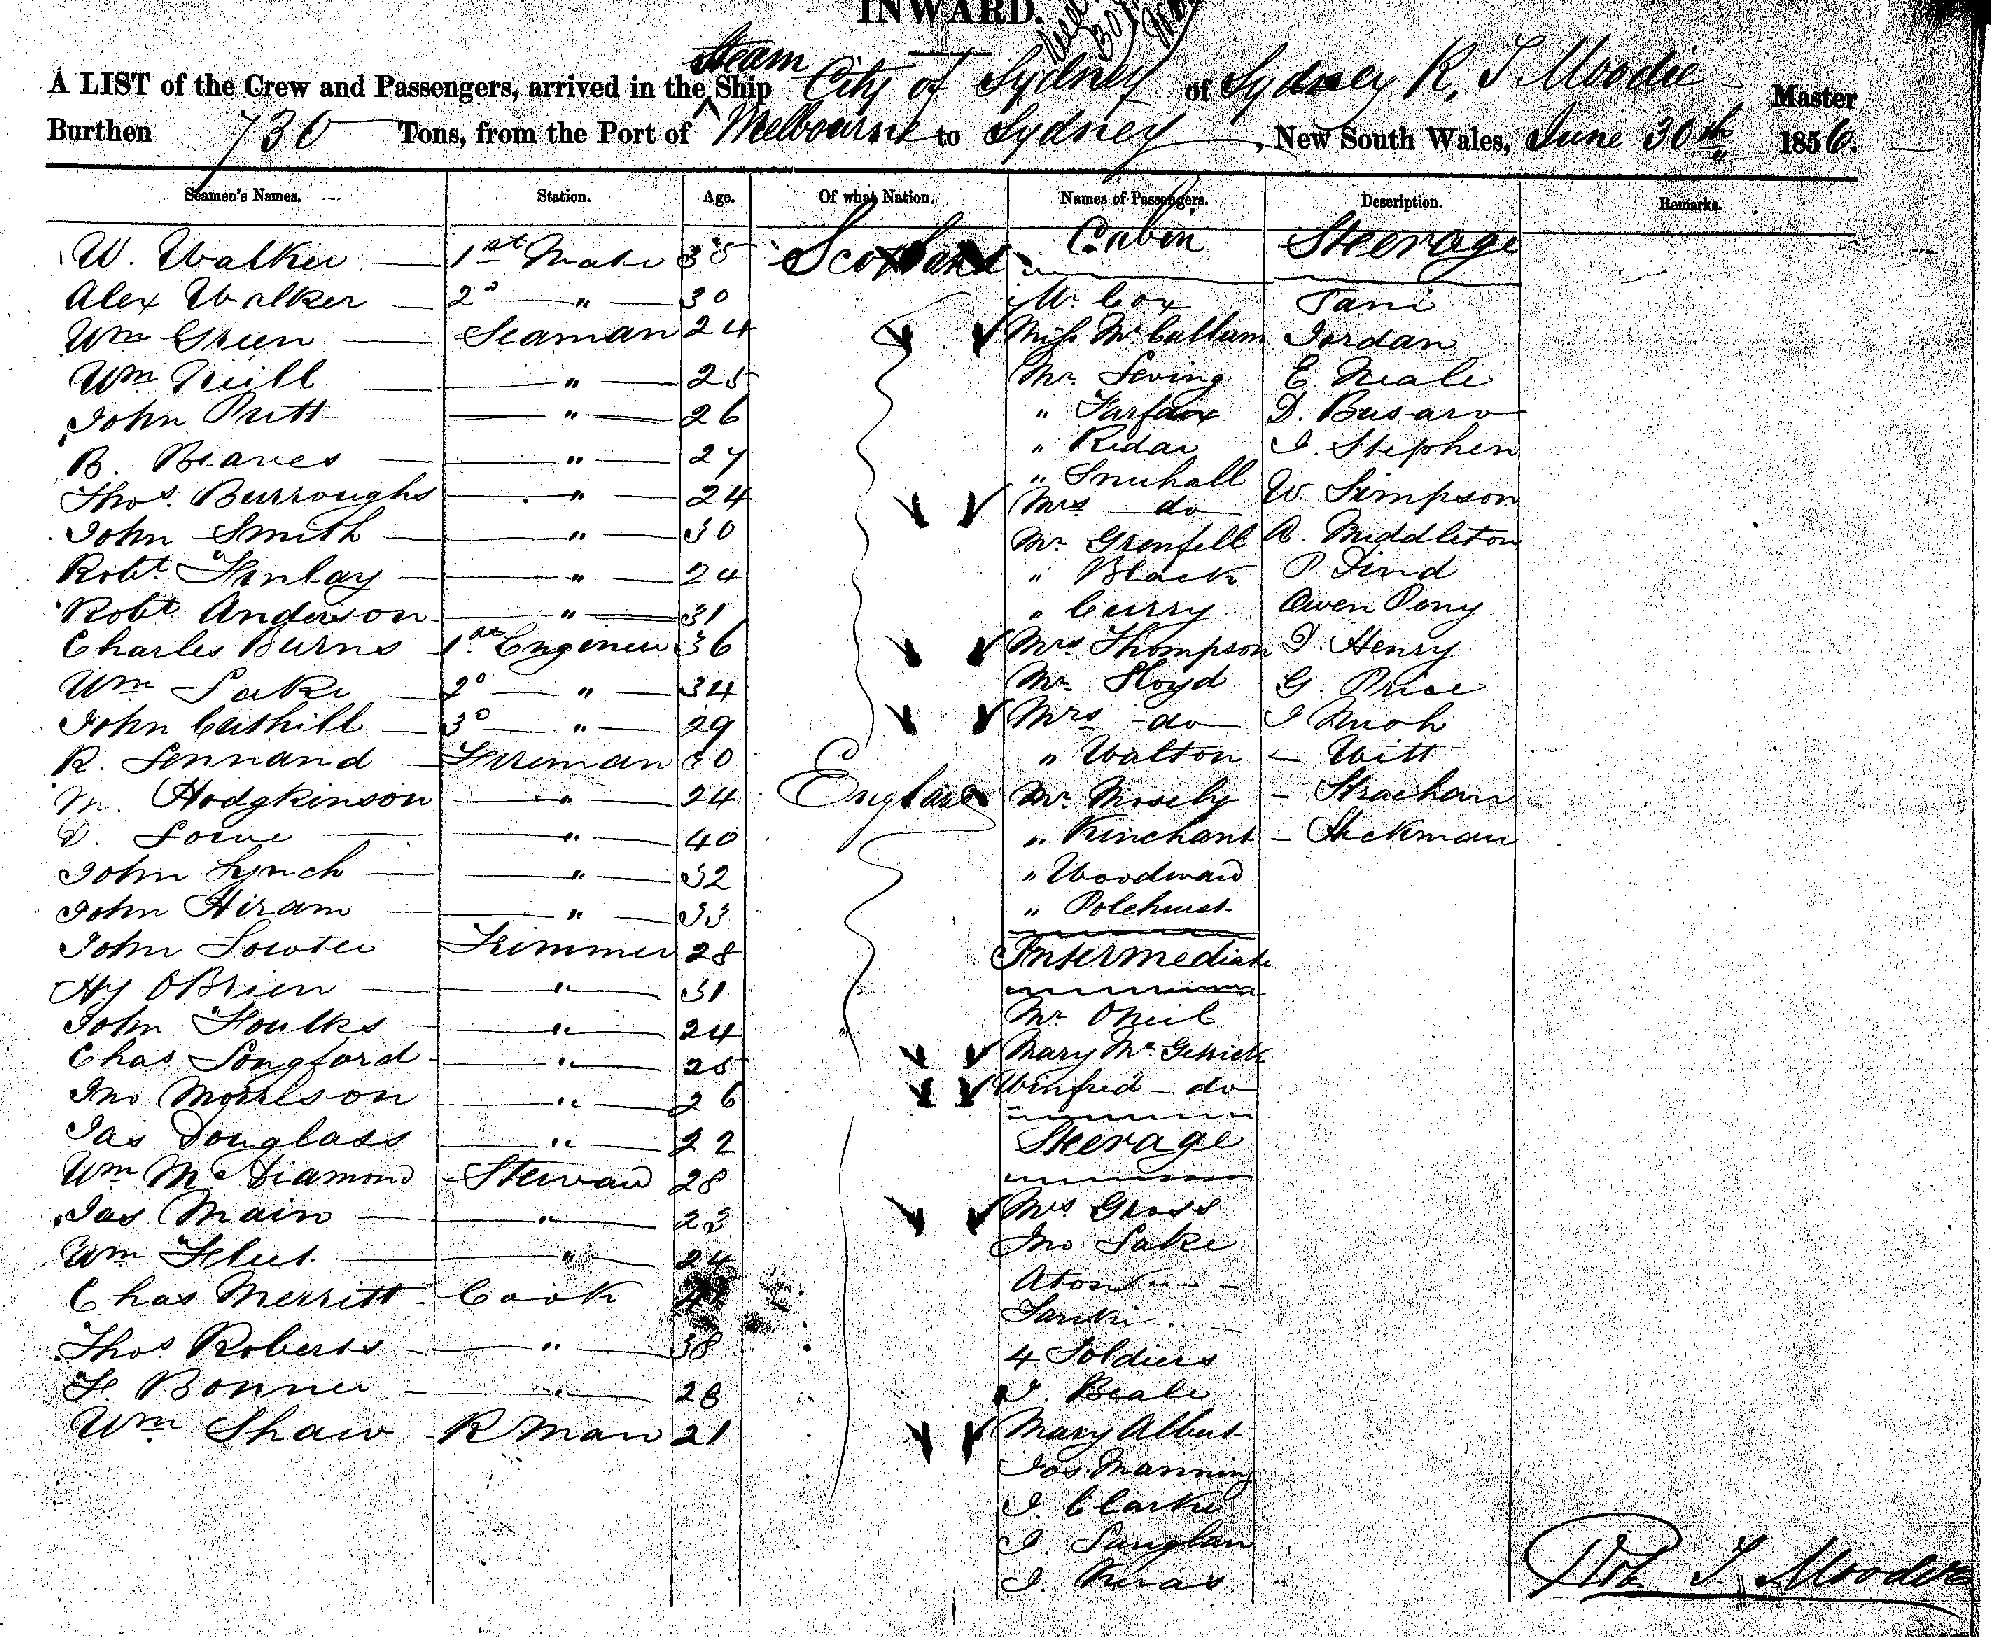 INWARD.
A LIST of the Crew and Passengers, arrived in the Steam Ship City of Sydney of Sydney R. T Moodie Master
Burthen 730 Tons, from the Port of Melbourne to Sydney, New South Wales, June 30th 1856.
Seamen's Names. Station. Age. Of what Nation. Names of Passengers. Description. Remarks.
W. Walker 1st Mate 35 Scotland Cabin Steerage
Alex Walker 2d " 30 Mr Cox
Wm Green Seaman 24 Miss McCallum Jordan
Wm Neill " 25 Mr E Neale
John Pritt " 26 " Fairfax D.
B. Beaves " 27 " J. Stephen
Thos. Burroughs " 24 " W Simpson
John Smith " 30 Mrs do A. Middleton
Robt Finlay " 24 Mr Grenfell P
Robt Anderson " 31 " Black Owen Pony
Charles Burns 1st Engineer 36 " Curry J. Henry
Wm Lake 2d " 34 Mrs Thompson G. Price
John Cashill 3d " 29 Mr Lloyd J
R. Lennand Fireman 30 Mrs do Witt
M. Hodgkinson " 24 England " Walton Strachan
D. Lowe " 40 Mr Mosely Hickman
John Lynch " 32 " Kinchant
John Hiram " 33 " Woodward
John Lowter Trimmer 28 " Polehurst
Hy OBrien " 31 Intermediate
John Foulks " 24 Mr ONeil
Chas Longford " 25 Mary
Jno Morrison " 26 Winfred do
Jas Douglass " 22 Steerage
Wm McDiamond Steward 28
Jas Main " 23 Mrs Gross
Wm " 24 Jno Lake
Chas Merritt Cook
Thos Roberts " 38 4 Soldiers
F Bonner " 28 J. Beale
Wm Shaw R Man 21 Mary Albert
Jos Manning
J. Clarke
J. Langlan
J.
Rob T. Moodie